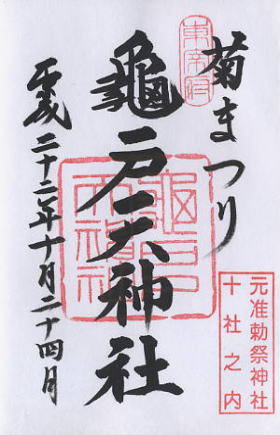 菊まつり
東宰府
龜戸天神社
龜戸
天神社
平成二十二年十月二十四日
元准勅祭神社
十社之内